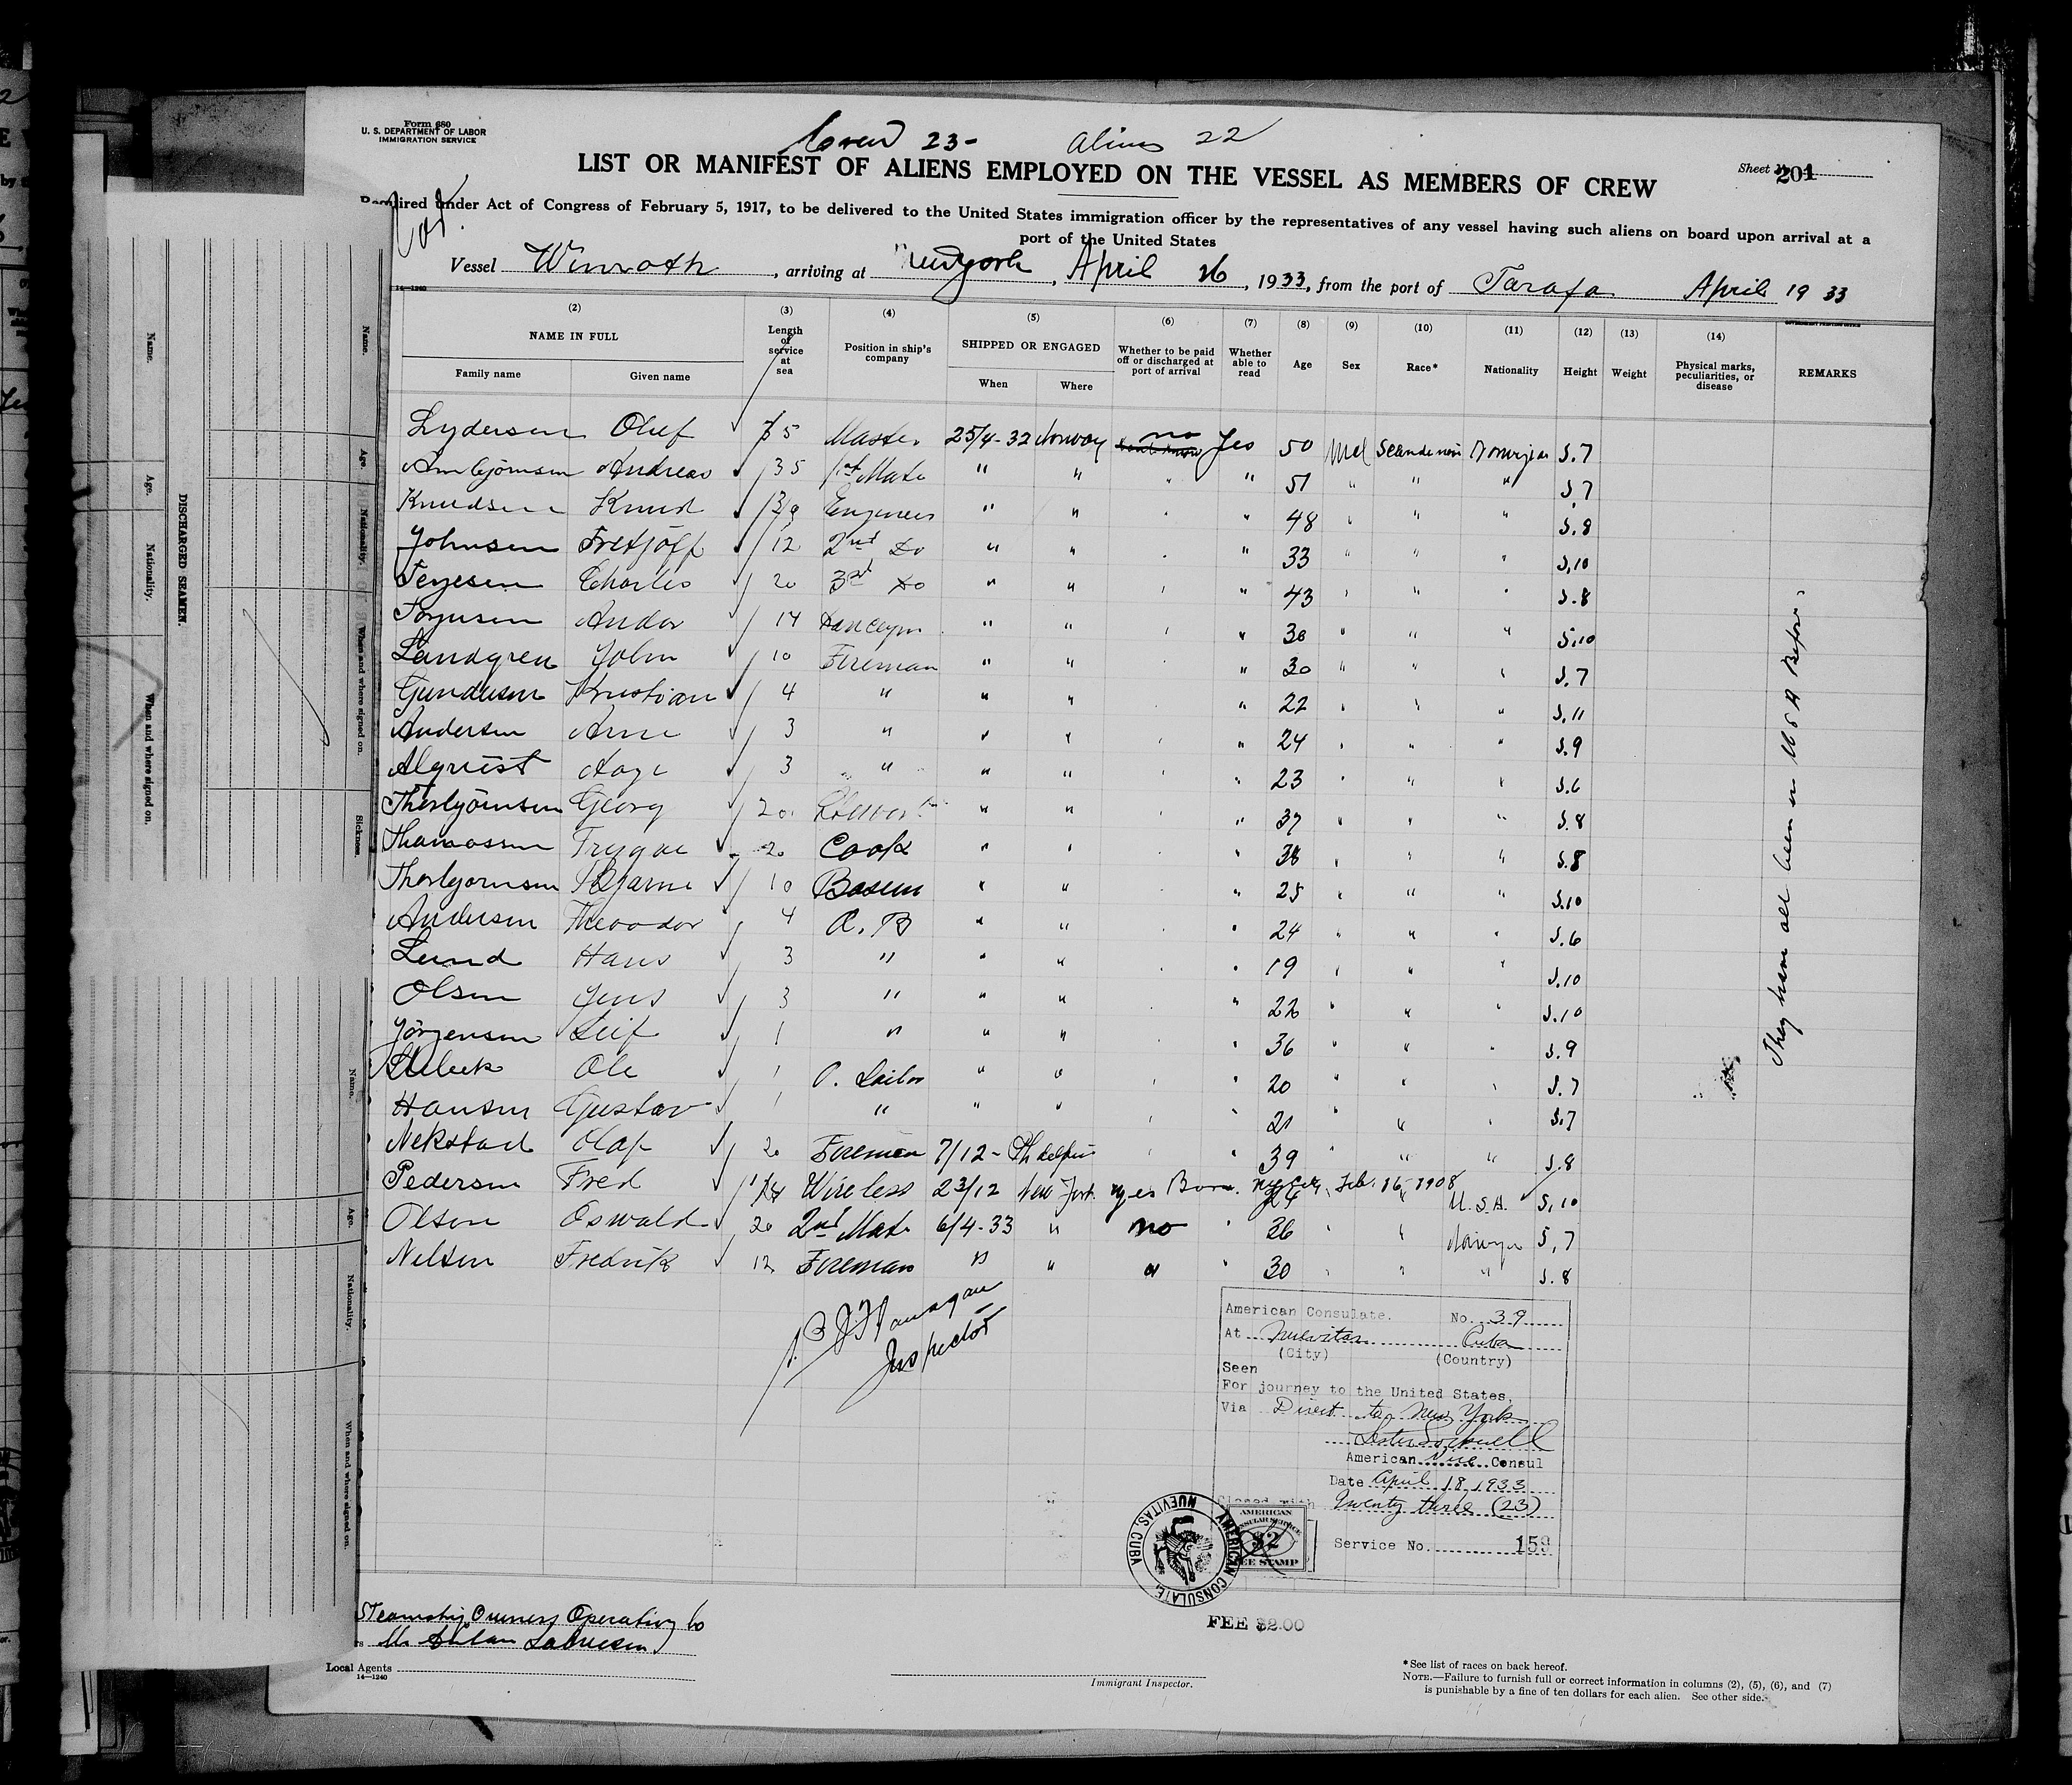 Form 680
U. S. DEPARTMENT OF LABOR
IMMIGRATION SERVICE
Crew 23- Aliens 22
LIST OR MANIFEST OF ALIENS EMPLOYED ON THE VESSEL AS MEMBERS OF CREW
Sheet 201
Required under Act of Congress of February 5, 1917, to be delivered to the United States immigration officer by the representatives of any vessel having such aliens on board upon arrival at a
port of the United States
Vessel Winroth, arriving at New York, April 26, 1933, from the port of Tarafa April 1933
14—1240
GOVERNMENT PRINTING OFFICE
(2) (3) (4) (5) (6) (7) (8) (9) (10) (11) (12) (13) (14)
NAME IN FULL Length of service at sea Position in ship's company SHIPPED OR ENGAGED Whether to be paid off or discharged at port of arrival Whether able to read Age Sex Race* Nationality Height Weight Physical marks, peculiarities, or disease REMARKS
Family name Given name When Where
Lydersen Oluf 35 Master 25/4-32 Norway no Yes 50 Mal Norwegian 5.7
Andreas 35 1st Mate " " " 51 " " " 5.7
Knudsen Knud Engineer " " " 48 " " " 5.8
Johnsen 12 2nd Do " " " 33 " " " 5,10
Charles 20 3rd Do " " " 43 " " " 5.8
Andor 14 " " " 30 " " " 5,10
Landgren John 10 Fireman " " " 30 " " " 5.7
Kristian 4 " " " " 22 " " " 5.11
Andersen Arne 3 " " " " 24 " " " 5.9
Alqvist Aage 3 " " " " 23 " " " 5.6
Thorbjörnsen Georg 20 " " " 37 " " " 5.8
Thomassen Trygve 20 Cook " " " 38 " " " 5.8
Thorbjornsen Bjarne 10 Bosun " " " 25 " " " 5.10
Andersen Theodor 4 A.B " " " 24 " " " 5.6
Lund Hans 3 " " " " 19 " " " 5.10
Olsen Jens 3 " " " " 22 " " " 5.10
Jörgensen Leif 1 " " " " 36 " " " 5.9
Ole 1 O. Sailor " " " 20 " " " 5.7
Hansen Gustav 1 " " " " 21 " " " 5.7
Nekstad Olaf 20 Fireman 7/12- " 39 " " " 5.8
Pedersen Fred Wireless 23/12 New York yes Born Feb. 16-1908 24 " U.S.A. 5,10
Olsen Oswald 20 2nd Mate 6/4-33 " no 36 " " 5,7
Nelsen Fredrik 12 Fireman " " " " 30 " " " 5.8
They have all been in U S A Before.
Inspector
American Consulate. No. 39
At Nuevitas Cuba
(City) (Country)
Seen
For journey to the United States,
Via Direct to New York
American Vice Consul
Date April 18, 1933
Closed with Twenty three (23)
Service No. 159
AMERICAN CONSULATE, NUEVITAS, CUBA
AMERICAN
CONSULAR SERVICE
$2
FEE STAMP
FEE $2.00
Steamship Owners Operating Co
Local Agents
14—1240
Immigrant Inspector.
*See list of races on back hereof.
NOTE.—Failure to furnish full or correct information in columns (2), (5), (6), and (7)
is punishable by a fine of ten dollars for each alien. See other side.
DISCHARGED SEAMEN.
Name.
Age.
Nationality.
When and where signed on.
Name.
Age.
Nationality.
When and where signed on.
Sickness.
Name.
Age.
Nationality.
When and where signed on.